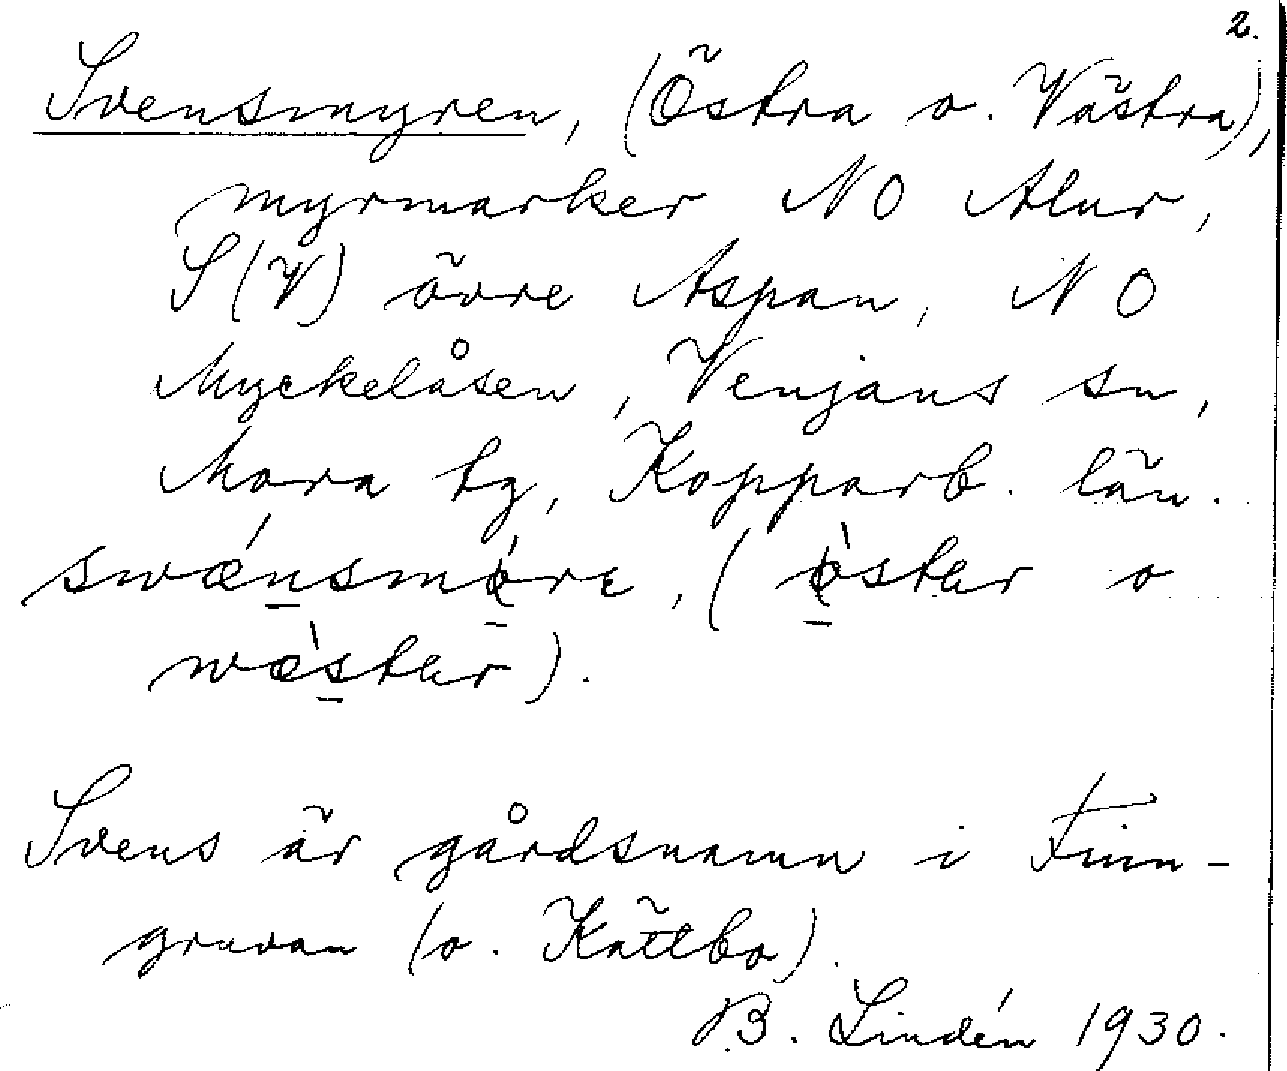 2.
Svensmyren, (Östra o. Västra),
myrmarker NO Alur,
S(V) övre Aspan, NO
Myckelåsen, Venjans sn,
Mora tg, Kopparb. län.
swǽnsmǿre, (ø̀ster o
wæ̀ster).
Svens är gårdsnamn i Finn-
gruvan (o. Kättbo).
B. Lindén 1930.